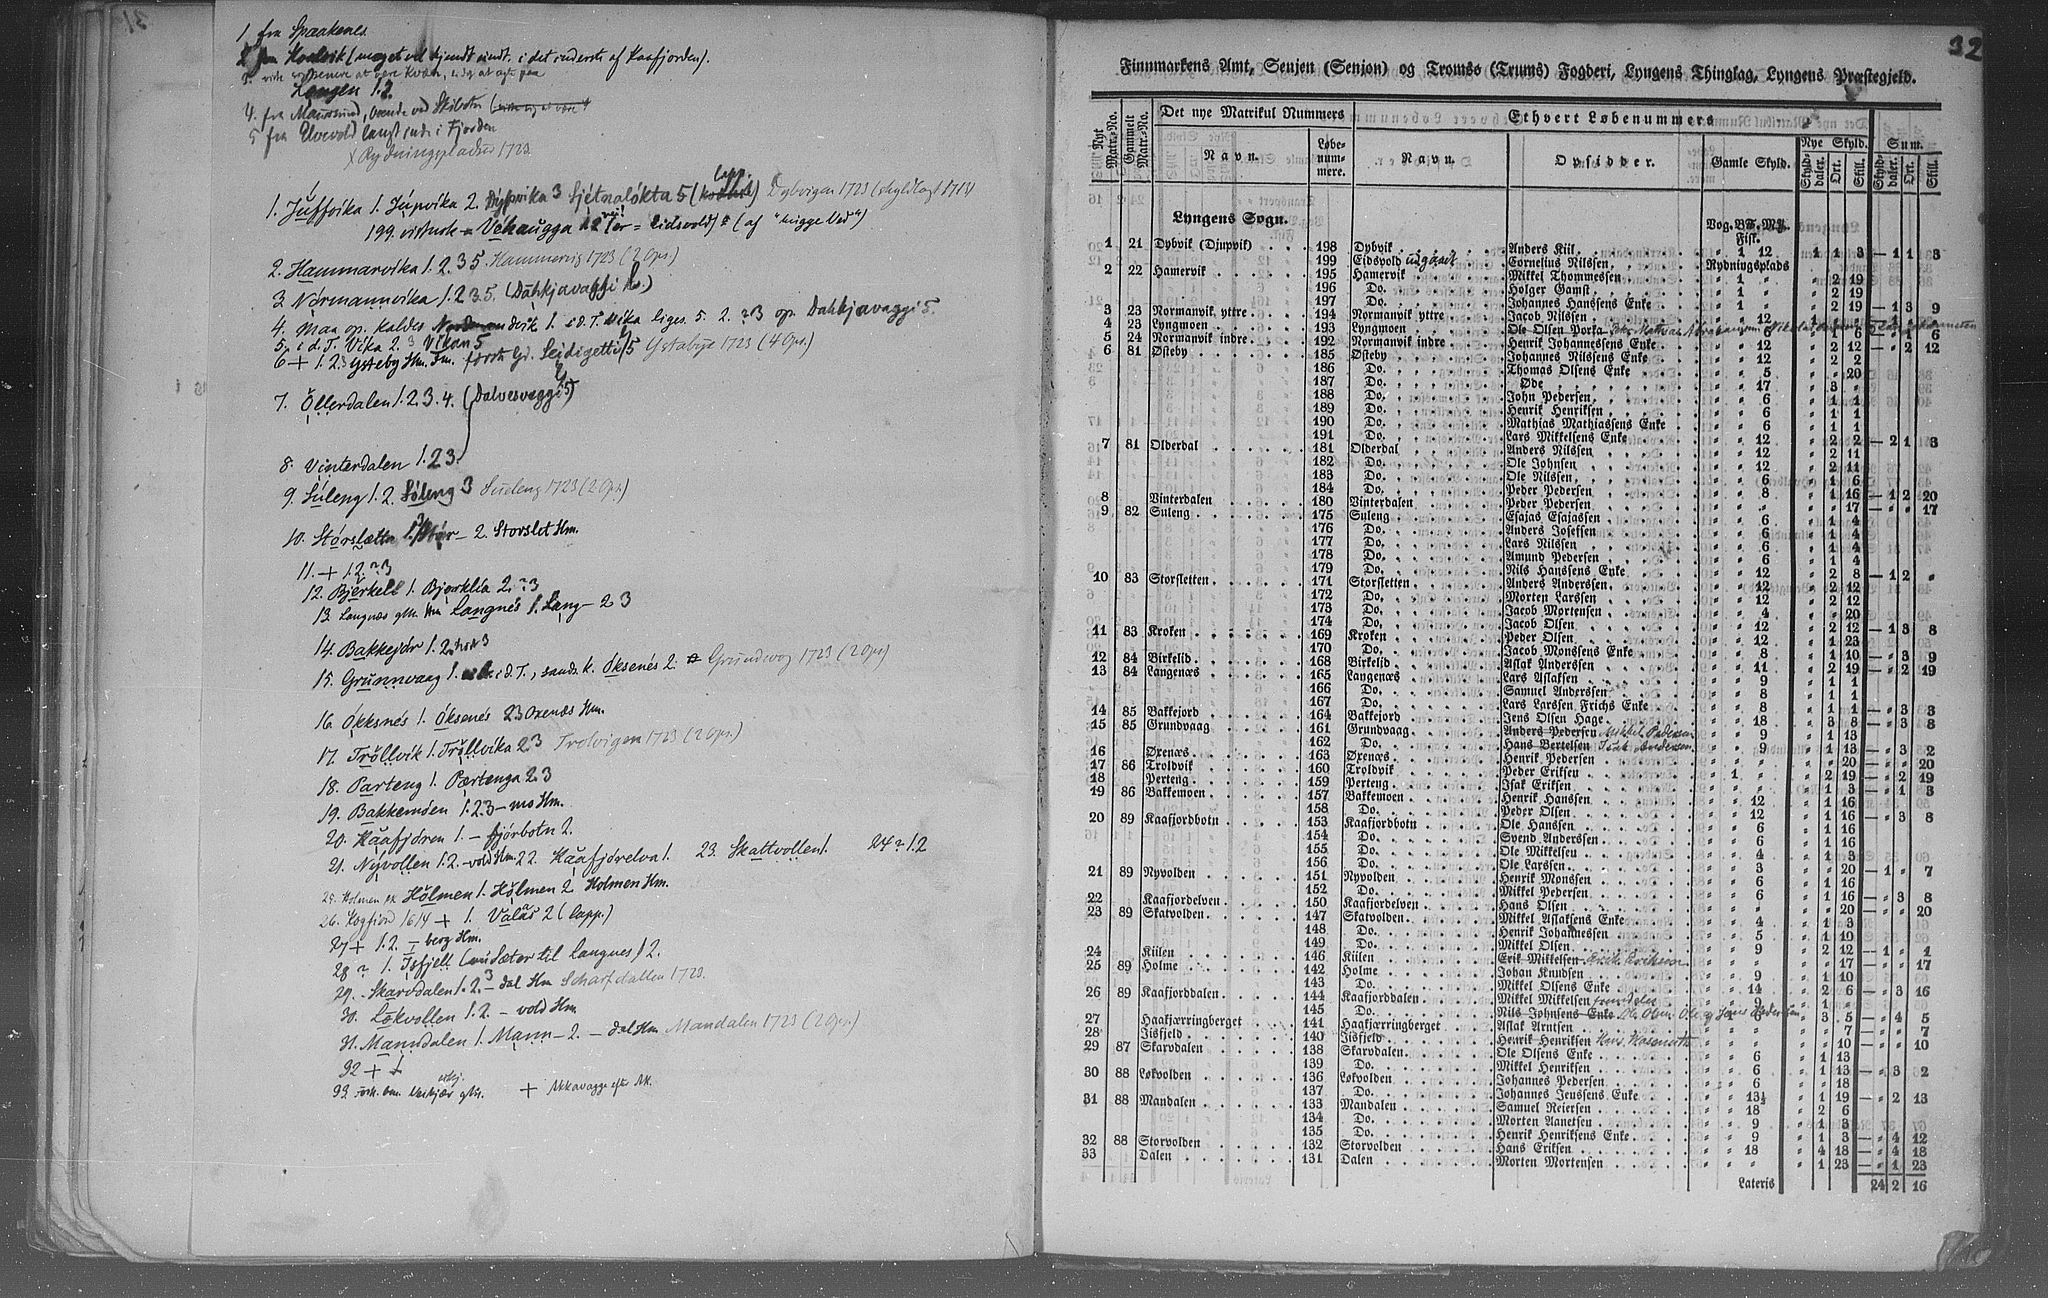 1. fra Spaakenes.
2. fra Kvalvik (meget vel kjendt eindt. i det inderste af Kaafjorden).
Lyngen 1.2.
4. fra Maursund, boende ved Skibotn
5 fra Elvevold langt inde i Fjorden
x Rydningspladser 1723.
1. Júffvika 1. Júpvika 2. Dýpvika 3 Sjétnalókta 5 (lapp.) Dybvigen 1723 (skyldlagt 1713)
2. Hammarvika 1.2.3 5. Hammervig 1723 (2 Ops.)
3. Nórmannvika 1.2 3 5. (Dáhkjavaggi)
4. Maa op. kaldes
5. i d. T. Vika 2. 3 Vikan 5
6 + 1. 2 3 Ysteby Hm. Ystabye 1723 (4 Ops.)
7. Óllerdalen 1.2.3.4. (Dalvesvaggi 5)
8. Vinterdalen 1.2 3.
9. Súleng 1.2 Sóleng 3 Suuleng 1723 (2 Ops.)
10. Stórslætta 1. Stór- 2. Storslet Hm.
11. + 1.2 ? 3
12. Bjerkeli 1. Bjorklia 2. ? 3
13. Langnæs gln. Hm Langnés 1. Lang- 2 3
14. Bakkejór 1.2. 3
15. Grunnvaag 1. i d. T., sands. k. óksenés 2. Grundvog 1723 (2 Ops)
16. Ókksnés 1. Óksenés 2 3 Oxenæs Hm.
17. Tróllvik 1. Tróllvika 2 3 Trolvigen 1723 (2 Ops.)
18. Parteng 1. Pærtenga 2. 3
19. Bakkemoen 1.2 3 – mo Hm.
20. Kaafjóren 1. – fjórbotn 2.
21. Nyvollen 1.2. – vold Hm. 22. Kaafjórelva 1. 23. Skattvollen 1. 24 ? 1. 2
25. Holmen Hólmen 1. Hólmen 2 Holmen Hm.
26. Kogfiord 1614 + 1. Valás 2 (lapp.)
27 + 1. 2. – berg Hm.
28 ? 1. Isfjell (nu Sæter til Langnes) 2.
29. Skardalen 1. 2. 3 – dal Hm Scharfdallen 1723.
30. Lókvollen 1.2 – vold Hm.
31. Manndalen 1. Mann – 2. – dal Hm Mandalen 1723 (2 Ops.)
32 + 1
33. + Akkavagge efter AK.
32
Finnmarkens Amt, Senjen (Senjon) og Tromsø (Trums) Fogderi, Lyngens Thinglag, Lyngens Præstegjeld.
Nyt Matr.-No. Gammelt Matr.-No. Det nye Matrikul Nummers Ethvert Løbenummers
Navn. Løbe-nummere. Navn. Opsidder. Gamle Skyld. Nye Skyld. Sum.
Skylddaler. Ort. Skill. Skylddaler. Ort. Skill.
Lyngens Sogn. Vog. BP. Mk. Fisk.
1 21 Dybvik (Djupvik) 198 Dybvik Anders Kiil. " 1 12 1 1 3 — 1 1 3
199 Eidsvold udgaaet Cornelius Nilssen. Rydningsplads
2 22 Hamervik 195 Hamervik Mikkel Thommessen " 1 " " 2 19
196 Do. Holger Gamst " 1 " " 2 19
197 Do. Johannes Hanssens Enke " 1 " " 2 19 — 1 3 9
3 23 Normanvik yttre 194 Normanvik yttre Jacob Nilssen " " 12
4 23 Lyngmoen 193 Lyngmoen Ole Olsen Porka
5 24 Normanvik indre 192 Normanvik indre Henrik Johannessens Enke " " 12 " 2 12
6 81 Østeby 185 Østeby Johannes Nilssens Enke " " 12 " 2 2
186 Do. Thomas Olsens Enke " " 5 " " 20
187 Do. Øde " " 17 " 3 "
188 Do. John Pedersen " " 6 " 1 1
189 Do. Henrik Henriksen " " 6 " 1 1
190 Do. Mathias Mathiassens Enke " " 6 " 1 1
191 Do. Lars Mikkelsens Enke " " 12 " 2 2 — 2 1 3
7 81 Olderdal 181 Olderdal Anders Nilssen " " 12 " 2 11
182 Do. Ole Johnsen " " 12 " 2 11
183 Do. Ole Nilssen " " 6 " 1 6
184 Do. Peder Pedersen " " 8 " 1 16 — 1 2 20
8 Vinterdalen 180 Vinterdalen Peder Pedersen " " " " " 17 — " " 17
9 82 Suleng 175 Suleng Esajas Esajassen " " 6 " 1 4
176 Do. Anders Josefsen " " 6 " 1 4
177 Do. Lars Nilssen " " 6 " 1 4
178 Do. Amund Pedersen " " 6 " 1 4
179 Do. Nils Hanssens Enke " " 12 " 2 8 — 1 2 "
10 83 Storsletten 171 Storsletten Anders Anderssen " " 12 " 2 12
172 Do. Morten Larssen " " 12 " 2 12
173 Do. Jacob Mortensen " " 4 " " 20
174 Do. Jacob Olsen " " 12 " 2 12 — 1 3 8
11 83 Kroken 169 Kroken Peder Olsen " " 12 " 1 23
170 Do. Jacob Monssens Enke " " 8 " 1 10 — " 3 9
12 84 Birkelid 168 Birkelid Aslak Anderssen " " 11 " 2 19 — " 2 19
13 84 Langenæs 165 Langenæs Lars Aslaksen " " 9 " 1 1
166 Do. Samuel Anderssen " " 8 " 1 1
167 Do. Lars Larssen Frichs Enke " " 8 " 1 1 — " 3 3
14 85 Bakkejord 164 Bakkejord Jens Olsen Hage " " 18 " 3 8 — " 3 8
15 85 Grundvaag 161 Grundvaag Anders Pedersen Mikkel Pedersen " " 9 " 1 13
162 Do. Hans Bertelsen Isak Andersen " " 9 " 1 13 — " 3 2
16 Øxenæs 163 Øxenæs Henrik Pedersen " " " " " 20 — " " 20
17 86 Troldvik 160 Troldvik Peder Eriksen " 1 " " 2 19 — " 2 19
18 Perteng 159 Perteng Isak Eriksen " " " " 1 3 — " 1 3
19 86 Bakkemoen 157 Bakkemoen Henrik Hanssen " " 12 " 1 16
158 Do. Peder Olsen " " 12 " 1 16 — " 3 8
20 89 Kaafjordbotn 153 Kaafjordbotn Ole Hanssen " " 6 " 1 16
154 Do. Svend Anderssen " " 6 " 1 16
155 Do. Ole Mikkelsen " " 4 " 1 3
156 Do. Ole Larssen " " 3 " " 20 — 1 " 7
21 89 Nyvolden 151 Nyvolden Henrik Monssen " " 6 " 1 16
152 Do. Mikkel Pedersen " " 6 " 1 16 — " 3 8
22 Kaafjordelven 150 Kaafjordelven Hans Olsen " " " " " 20 — " " 20
23 89 Skatvolden 147 Skatvolden Mikkel Aslaksens Enke " " 4 " 1 3
148 Do. Henrik Johannessen " " 5 " 1 10
149 Do. Mikkel Olsen " " 9 " 2 12 — 1 " 1
24 Kiilen 146 Kiilen Erik Mikkelsen Erik Eriksen " " " " " 17 — " " 17
25 89 Holme 142 Holme Johan Knudsen " " 9 " 1 10
143 Do. Mikkel Olsens Enke " " 14 " 2 6 — " 3 16
26 89 Kaafjorddalen 144 Kaafjorddalen Mikkel Mikkelsen " " 9 " 1 "
145 Do. Nils Johnsens Enke " 3 5 — " 4 5
27 Haakjærringberget 141 Haakjærringberget Aslak Arntsen " " " " " 7 — " " 7
28 Jisfjeld 140 Jisfjeld Henrik Henriksen " " " " " 10 — " " 10
29 87 Skarvdalen 138 Skarvdalen Ole Olsens Enke " " 6 " 1 13
139 Do. Mikkel Henriksen " " 6 " 1 13 — " 3 2
30 88 Løkvolden 136 Løkvolden Johannes Pedersen " " 6 " " 18
137 Do. Johannes Jenssens Enke " " 13½ " 1 19 — " 2 13
31 88 Mandalen 133 Mandalen Samuel Reiersen " " 18 " 2 6
134 Do. Morten Aanetsen " " 9 " 1 3
135 Do. Henrik Henriksens Enke " " 9 " 1 3 — " 4 12
32 88 Storvolden 132 Storvolden Hans Eriksen " " 18 " 4 18 — " 4 18
33 Dalen 131 Dalen Morten Mortensen " " " " 1 23 — " 1 23
Lateris 24 2 16